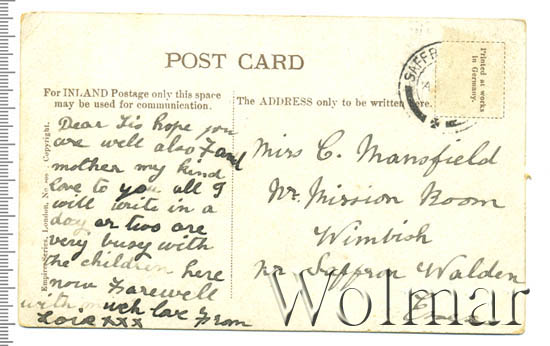 POST CARD
For INLAND Postage only this space
may be used for communication.
The ADDRESS only to be written here.
Printed at works
in Germany.
SAFFR
Empire Series, London, No
Copyright.
Dear Sis hope you
are well also & and
mother my kind
love to you all I
will write in a
day or two are
very busy with
the children here
now Farewell
with much love from
xxx
Mrs C. Mansfield
Nr Mission Room
Wimbish
nr Saffron Walden
Essex
Wolmar